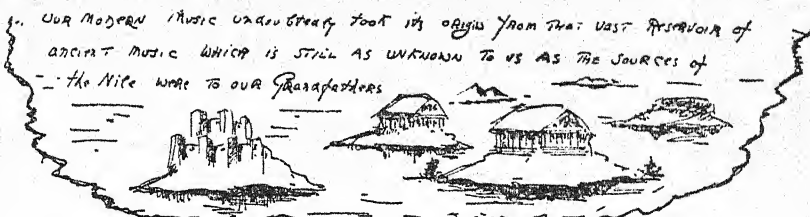 OUR MODERN MUSIC UNDOUBTEDLY TOOK ITS ORIGIN FROM THAT VAST RESERVOIR of
ANCIENT MUSIC WHICH IS STILL AS UNKNOWN TO US AS THE SOURCES of
the Nile WERE TO OUR Grandfathers